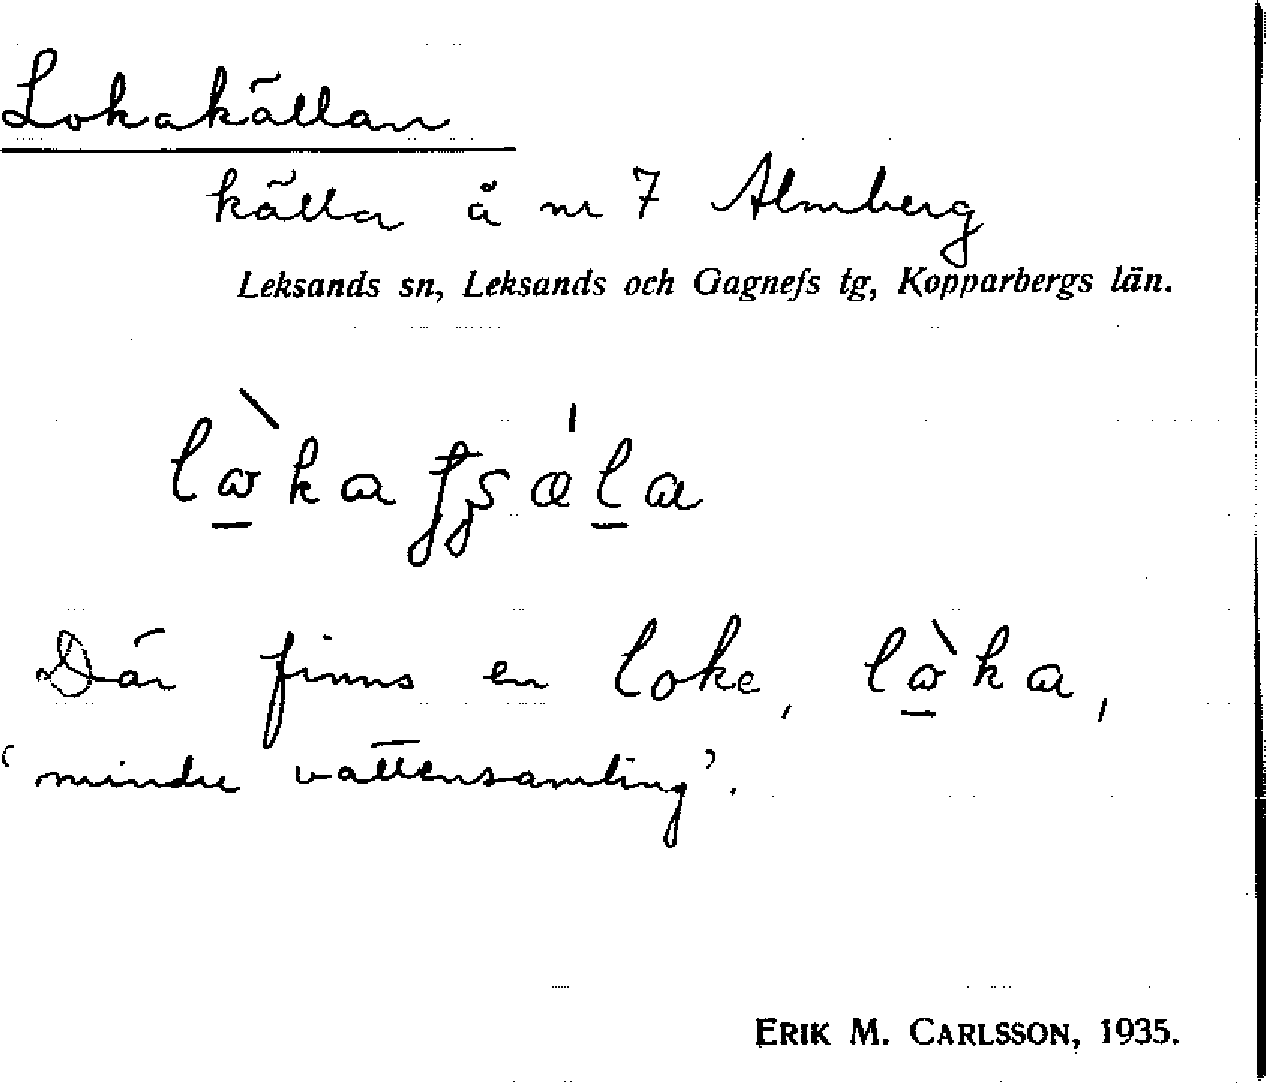 Lokakällan
källa å nr 7 Almberg
Leksands sn, Leksands och Gagnefs tg, Kopparbergs län.
Där finns en loke,
'mindre vattensamling'.
ERIK M. CARLSSON, 1935.